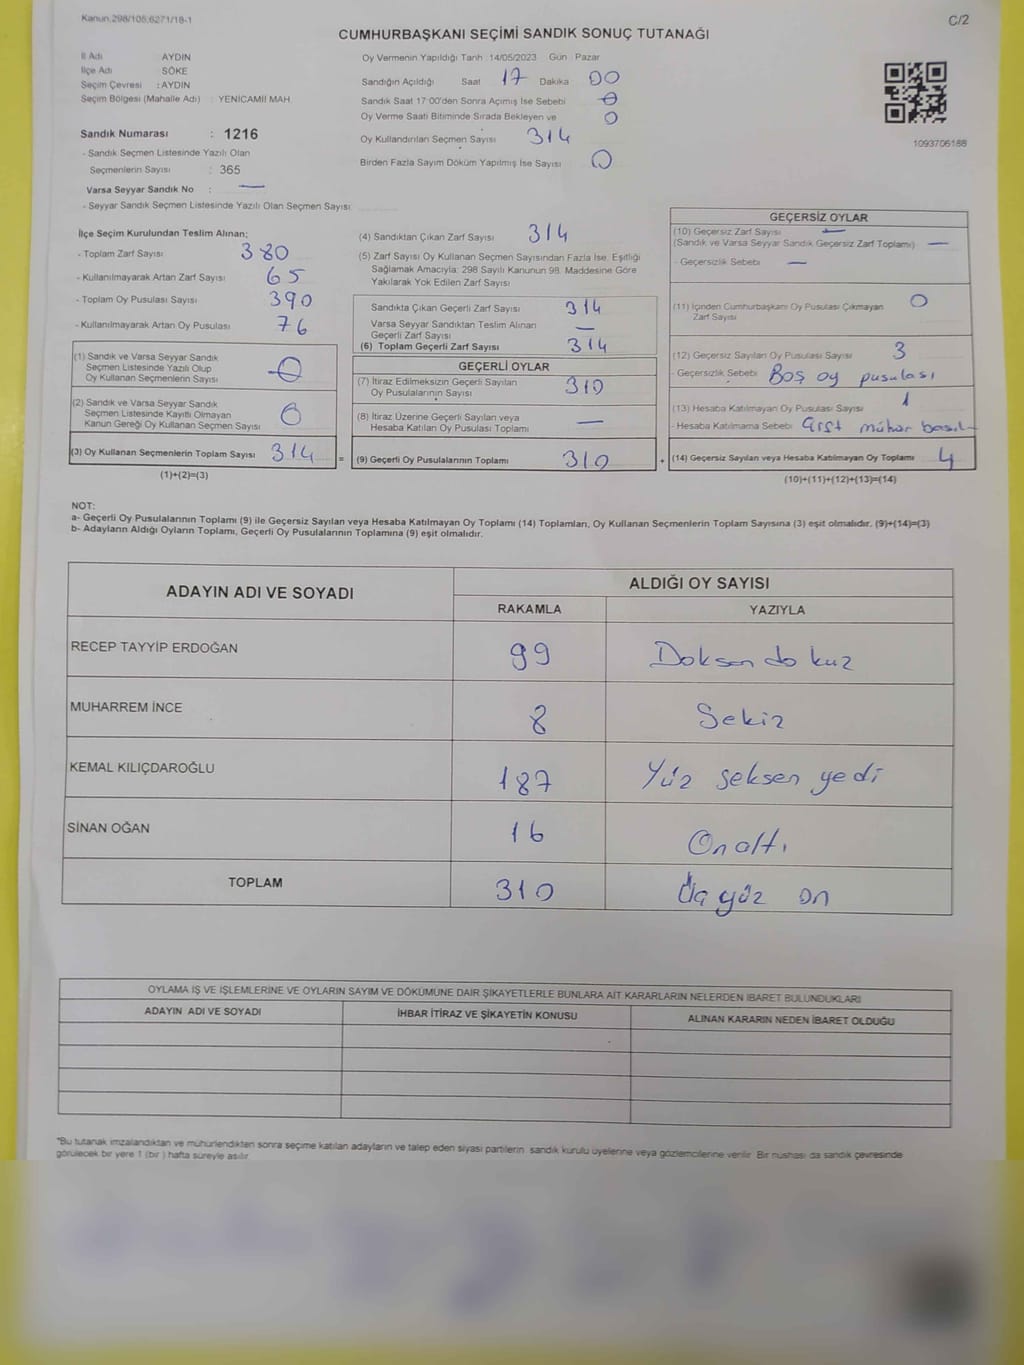 Kanun.298/105,6271/18-1
C/2
CUMHURBAŞKANI SEÇİMİ SANDIK SONUÇ TUTANAĞI
İl Adı AYDIN
İlçe Adı SÖKE
Seçim Çevresi : AYDIN
Seçim Bölgesi (Mahalle Adı) : YENİCAMİİ MAH.
Sandık Numarası : 1216
- Sandık Seçmen Listesinde Yazılı Olan
Seçmenlerin Sayısı : 365
Varsa Seyyar Sandık No : —
- Seyyar Sandık Seçmen Listesinde Yazılı Olan Seçmen Sayısı
Oy Vermenin Yapıldığı Tarih :14/05/2023 Gün : Pazar
Sandığın Açıldığı Saat 17 Dakika 00
Sandık Saat 17:00'den Sonra Açımış İse Sebebi
Oy Verme Saati Bitiminde Sırada Bekleyen ve 0
Oy Kullandırılan Seçmen Sayısı 314
Birden Fazla Sayım Döküm Yapılmış İse Sayısı 0
1093706188
İlçe Seçim Kurulundan Teslim Alınan;
- Toplam Zarf Sayısı 380
- Kullanılmayarak Artan Zarf Sayısı 65
- Toplam Oy Pusulası Sayısı 390
- Kullanılmayarak Artan Oy Pusulası 76
(1) Sandık ve Varsa Seyyar Sandık
Seçmen Listesinde Yazılı Olup
Oy Kullanan Seçmenlerin Sayısı
(2) Sandık ve Varsa Seyyar Sandık
Seçmen Listesinde Kayıtlı Olmayan
Kanun Gereği Oy Kullanan Seçmen Sayısı 0
(3) Oy Kullanan Seçmenlerin Toplam Sayısı 314 =
(1)+(2)=(3)
(4) Sandıktan Çıkan Zarf Sayısı 314
(5) Zarf Sayısı Oy Kullanan Seçmen Sayısından Fazla İse, Eşitliği
Sağlamak Amacıyla; 298 Sayılı Kanunun 98. Maddesine Göre
Yakılarak Yok Edilen Zarf Sayısı
Sandıkta Çıkan Geçerli Zarf Sayısı 314
Varsa Seyyar Sandıktan Teslim Alınan
Geçerli Zarf Sayısı —
(6) Toplam Geçerli Zarf Sayısı 314
GEÇERLİ OYLAR
(7) İtiraz Edilmeksizin Geçerli Sayılan
Oy Pusulalarının Sayısı 310
(8) İtiraz Üzerine Geçerli Sayılan veya
Hesaba Katılan Oy Pusulası Toplamı —
(9) Geçerli Oy Pusulalarının Toplamı 310 +
GEÇERSİZ OYLAR
(10) Geçersiz Zarf Sayısı —
(Sandık ve Varsa Seyyar Sandık Geçersiz Zarf Toplamı) —
- Geçersizlik Sebebi —
(11) İçinden Cumhurbaşkanı Oy Pusulası Çıkmayan 0
Zarf Sayısı
(12) Geçersiz Sayılan Oy Pusulası Sayısı 3
- Geçersizlik Sebebi Boş oy pusulası
(13) Hesaba Katılmayan Oy Pusulası Sayısı 1
- Hesaba Katılmama Sebebi mühür
(14) Geçersiz Sayılan veya Hesaba Katılmayan Oy Toplamı 4
(10)+(11)+(12)+(13)=(14)
NOT:
a- Geçerli Oy Pusulalarının Toplamı (9) ile Geçersiz Sayılan veya Hesaba Katılmayan Oy Toplamı (14) Toplamları, Oy Kullanan Seçmenlerin Toplam Sayısına (3) eşit olmalıdır. (9)+(14)=(3)
b- Adayların Aldığı Oyların Toplamı, Geçerli Oy Pusulalarının Toplamına (9) eşit olmalıdır.
ADAYIN ADI VE SOYADI ALDIĞI OY SAYISI
RAKAMLA YAZIYLA
RECEP TAYYİP ERDOĞAN 99 Doksan dokuz
MUHARREM İNCE 8 Sekiz
KEMAL KILIÇDAROĞLU 187 Yüz seksen yedi
SİNAN OĞAN 16 On altı
TOPLAM 310 Üç yüz on
OYLAMA İŞ VE İŞLEMLERİNE VE OYLARIN SAYIM VE DÖKÜMÜNE DAİR ŞİKAYETLERLE BUNLARA AİT KARARLARIN NELERDEN İBARET BULUNDUKLARI
ADAYIN ADI VE SOYADI İHBAR İTİRAZ VE ŞİKAYETİN KONUSU ALINAN KARARIN NEDEN İBARET OLDUĞU
*Bu tutanak imzalandıktan ve mühürlendikten sonra seçime katılan adayların ve talep eden siyasi partilerin sandık kurulu üyelerine veya gözlemcilerine verilir. Bir nüshası da sandık çevresinde
görülecek bir yere 1 (bir ) hafta süreyle asılır.